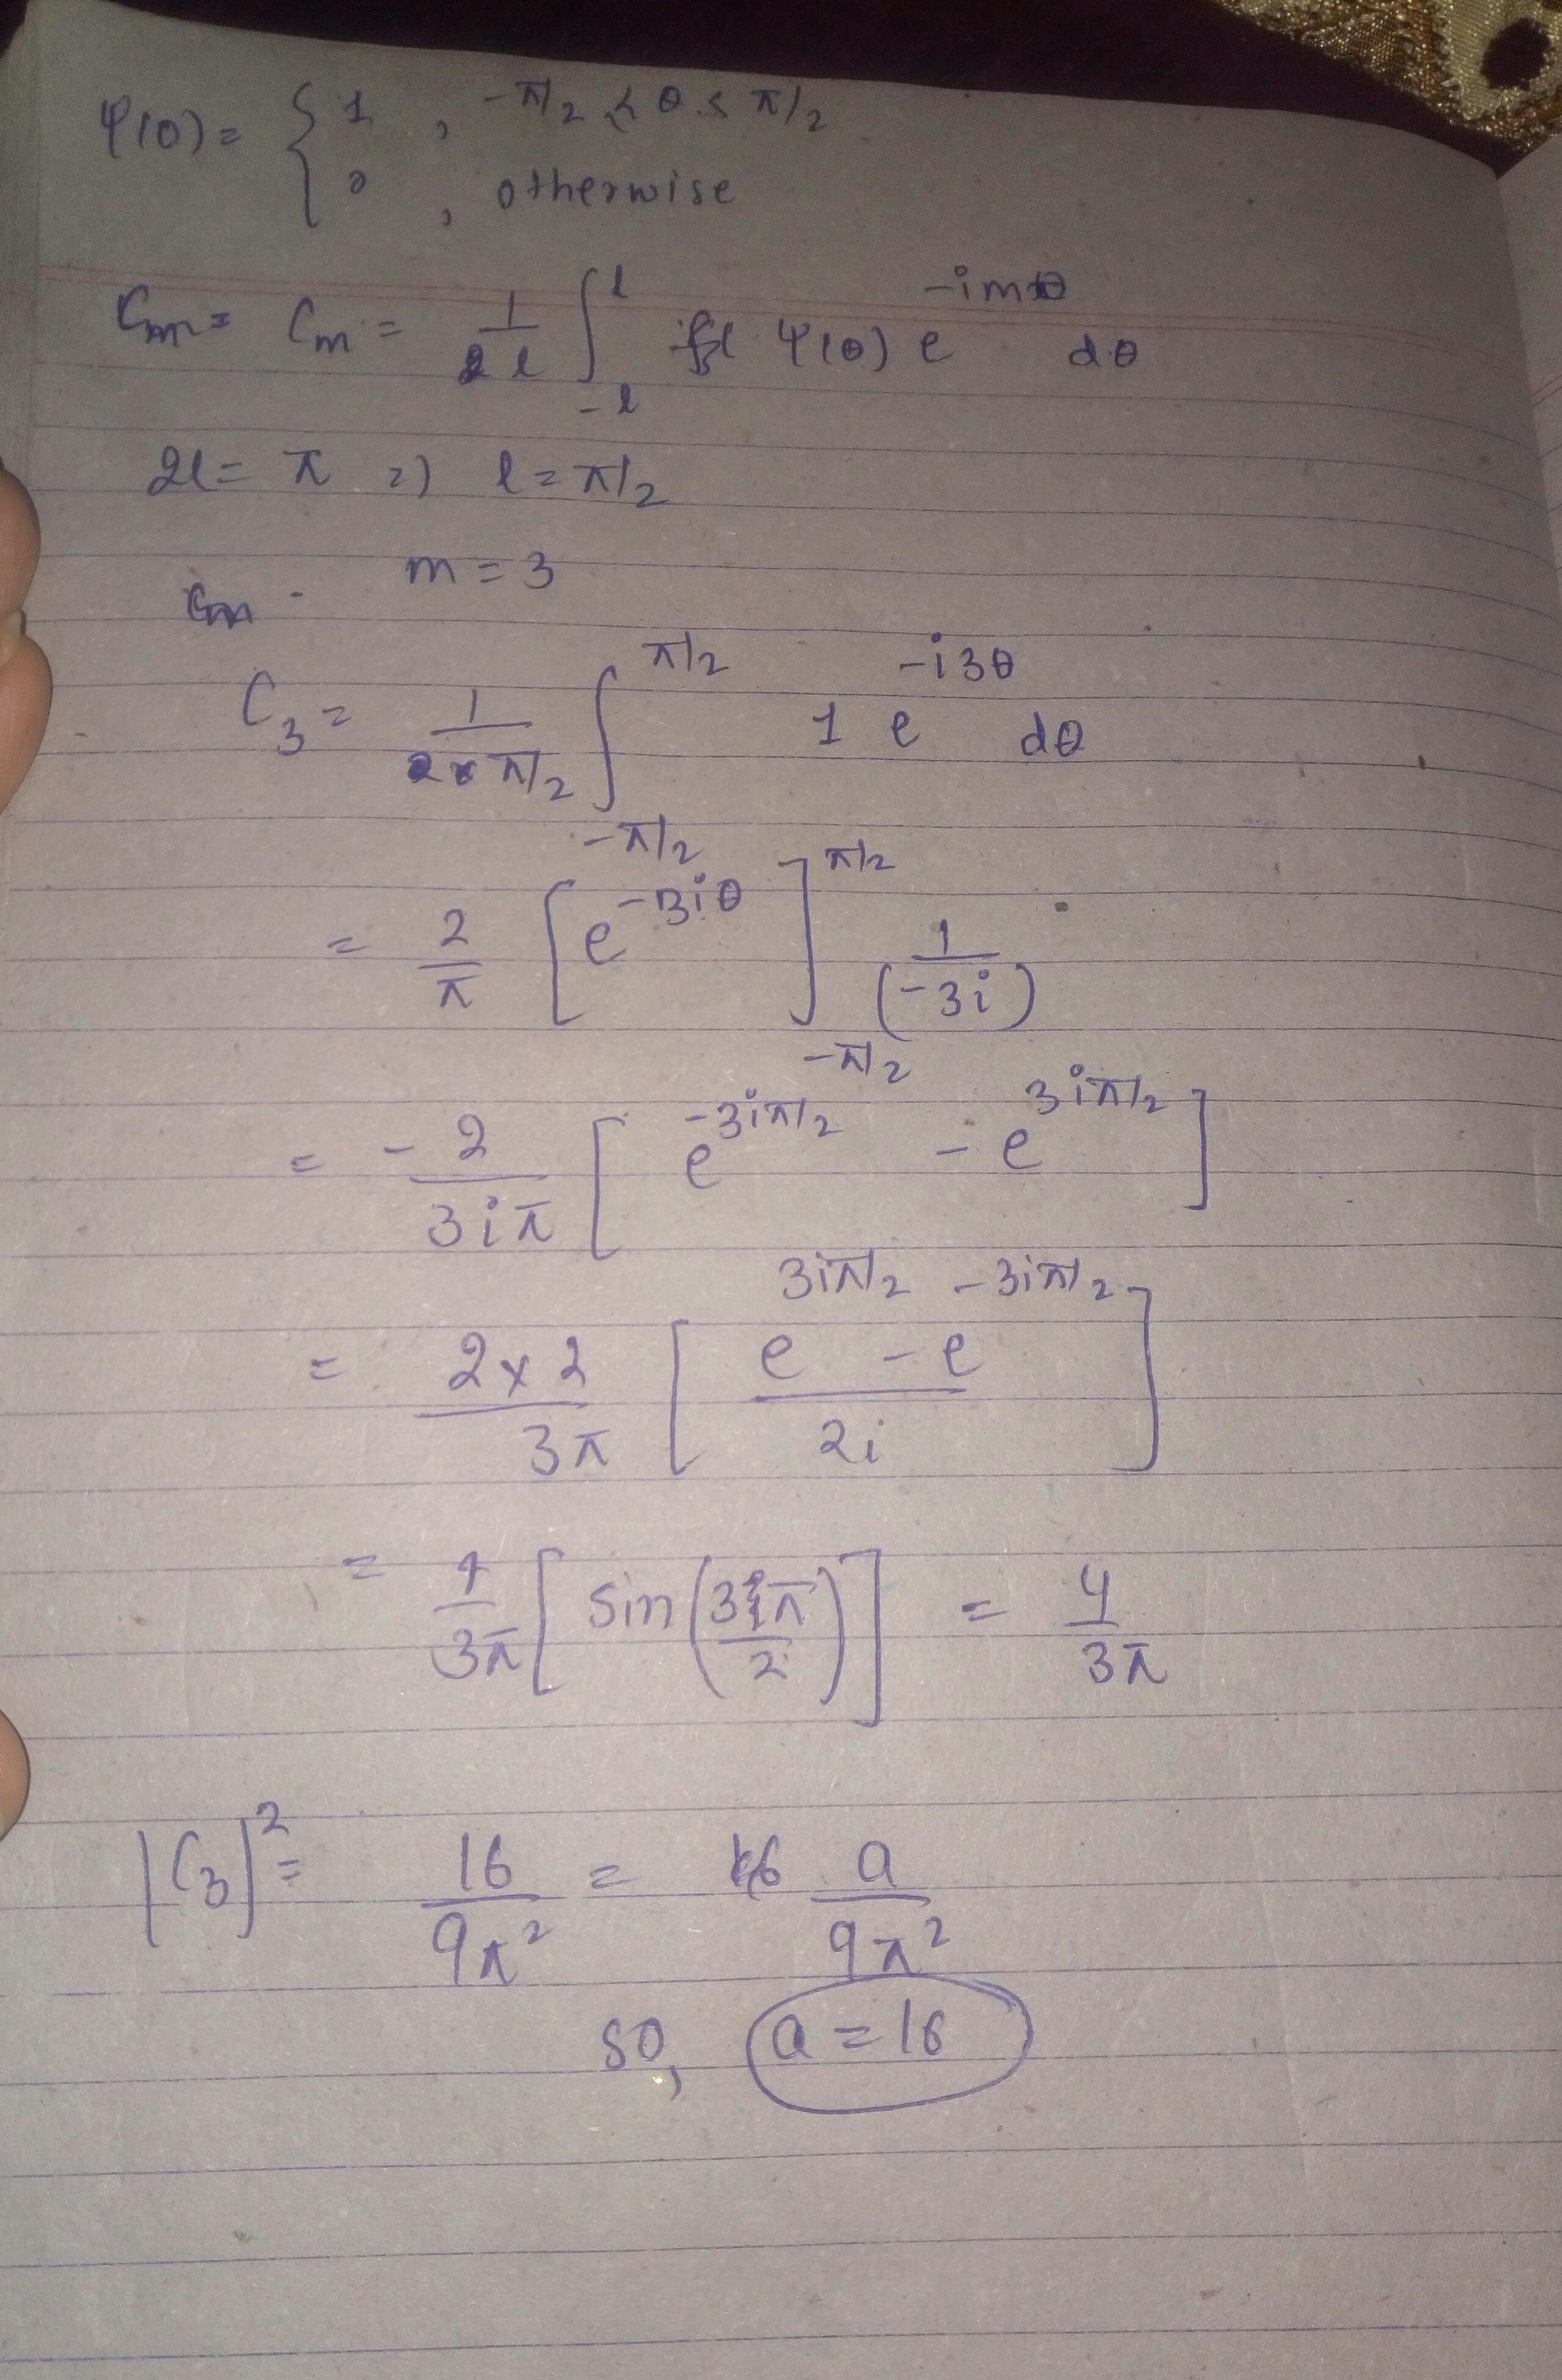 ψ(θ) = { 1 , -π/2 < θ < π/2
0 , otherwise
Cm = Cm = 1/2l ∫_{-l}^{l} ψ(θ) e^{-imθ} dθ
2l = π => l = π/2
Cm m = 3
C₃ = 1/(2×π/2) ∫_{-π/2}^{π/2} 1 e^{-i3θ} dθ
= 2/π [e^{-3iθ}]_{-π/2}^{π/2} 1/(-3i)
= -2/3iπ [e^{-3iπ/2} - e^{3iπ/2}]
= 2×2/3π [(e^{3iπ/2} - e^{-3iπ/2})/2i]
= 4/3π [sin(3π/2)] = 4/3π
|C₃|² = 16/9π² = a/9π²
so, a = 16